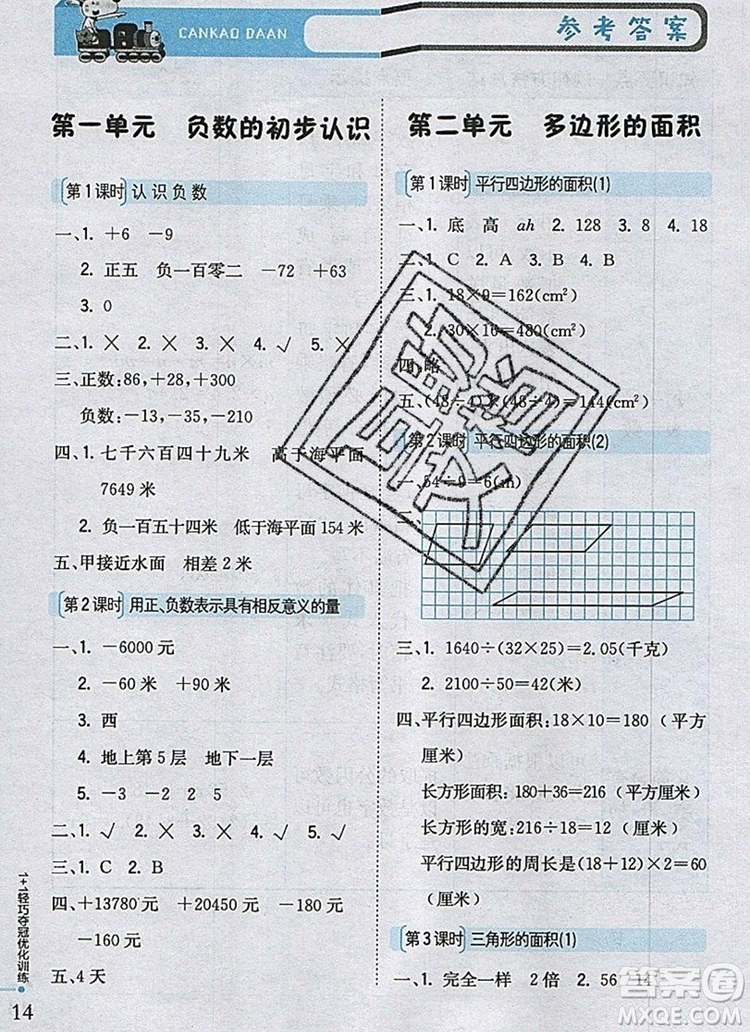 CANKAO DAAN
参考答案
第一单元 负数的初步认识
第1课时 认识负数
一、1. +6 -9
2. 正五 负一百零二 -72 +63
3. 0
二、1. × 2. × 3. × 4. √ 5. ×
三、正数:86,+28,+300
负数:-13,-35,-210
四、1. 七千六百四十九米 高于海平面
7649 米
2. 负一百五十四米 低于海平面 154 米
五、甲接近水面 相差 2 米
第2课时 用正、负数表示具有相反意义的量
一、1. -6000 元
2. -60 米 +90 米
3. 西
4. 地上第 5 层 地下一层
5. -3 -2 2 5
二、1. √ 2. √ 3. √ 4. √
三、1. C 2. B
四、+13780 元 +20450 元 -380 元
-160 元
五、4 天
第二单元 多边形的面积
第1课时 平行四边形的面积(1)
一、1. 底 高 ah 2. 128 3. 8 4. 18
二、1. C 2. A 3. B 4. B
三、1. 18×9=162(cm²)
2. 30×16=480(cm²)
四、略
五、(48÷4)×(48÷4)=144(cm²)
第2课时 平行四边形的面积(2)
一、54÷9=6(m)
二、
三、1. 1640÷(32×25)=2.05(千克)
2. 2100÷50=42(米)
四、平行四边形面积:18×10=180(平方
厘米)
长方形面积:180+36=216(平方厘米)
长方形的宽:216÷18=12(厘米)
平行四边形的周长是(18+12)×2=60
(厘米)
第3课时 三角形的面积(1)
一、1. 完全一样 2倍 2. 56 14
1+1轻巧夺冠优化训练
14
答案圈
MXQE.COM